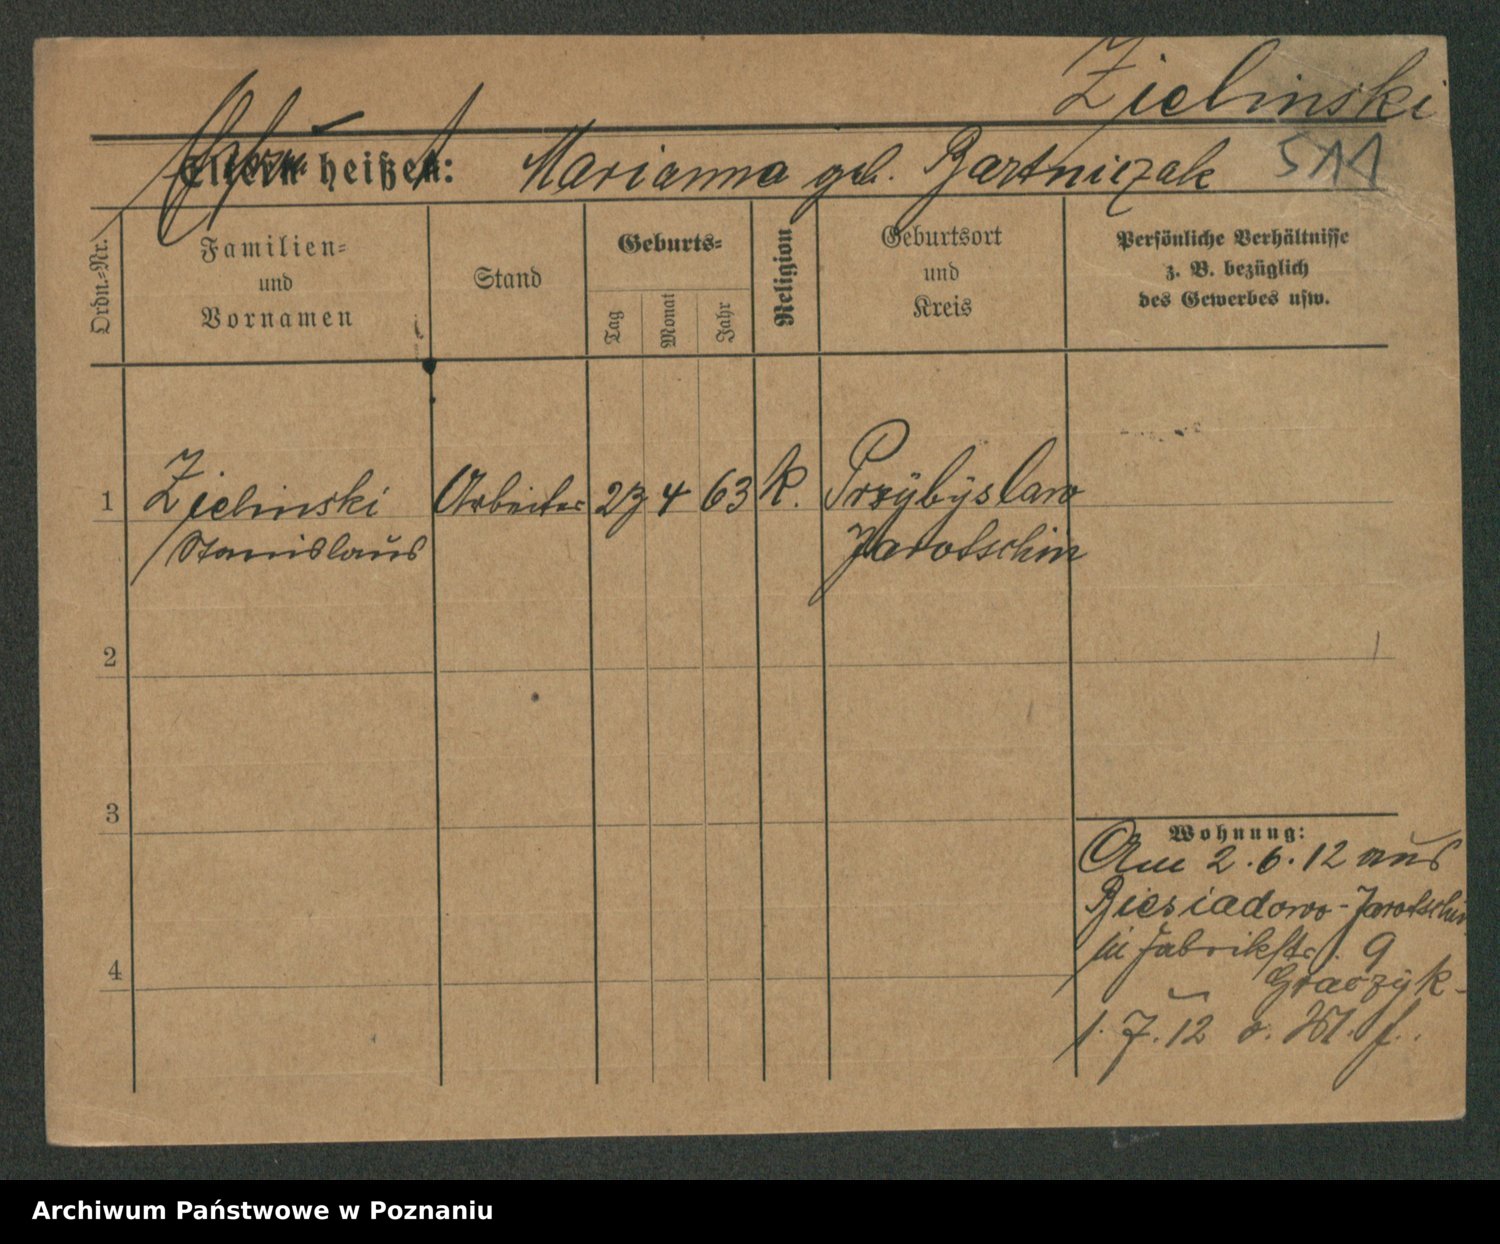 Zielinski
Eltern heißen: Marianna geb. Bartniczak 511
Ordn.-Nr.
Familien-
und
Vornamen
Stand
Geburts-
Tag
Monat
Jahr
Religion
Geburtsort
und
Kreis
Persönliche Verhältnisse
z. B. bezüglich
des Gewerbes usw.
1 Zielinski Arbeiter 23 4 63 k. Przybyslaw
Stanislaus Jarotschin
2
3
4
Wohnung:
Am 2.6.12 aus
Biesiadowo-Jarotschin
in Fabrikstr. 9
Graczyk
1.7.12
Archiwum Państwowe w Poznaniu